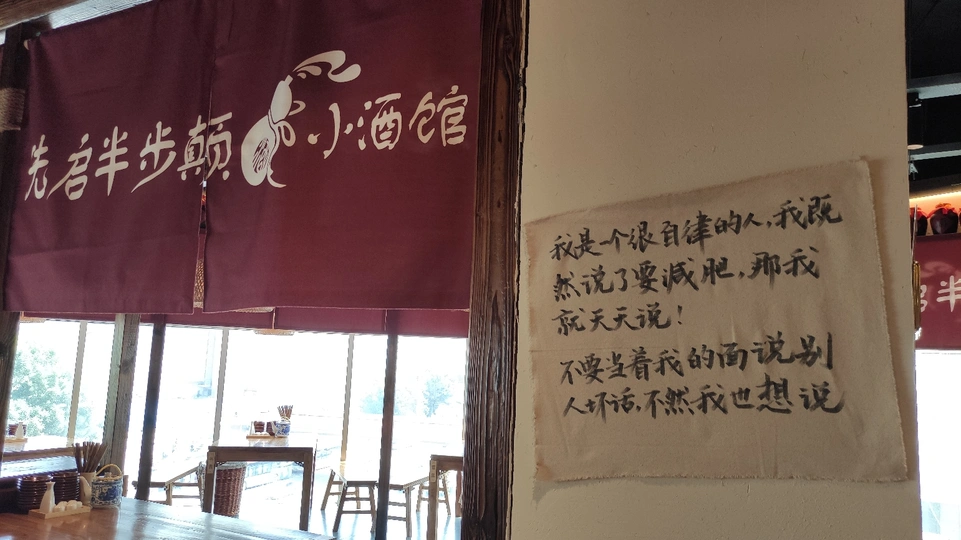 先启半步颠小酒馆
我是一个很自律的人,我既
然说了要减肥,那我
就天天说!
不要当着我的面说别
人坏话,不然我也想说
半